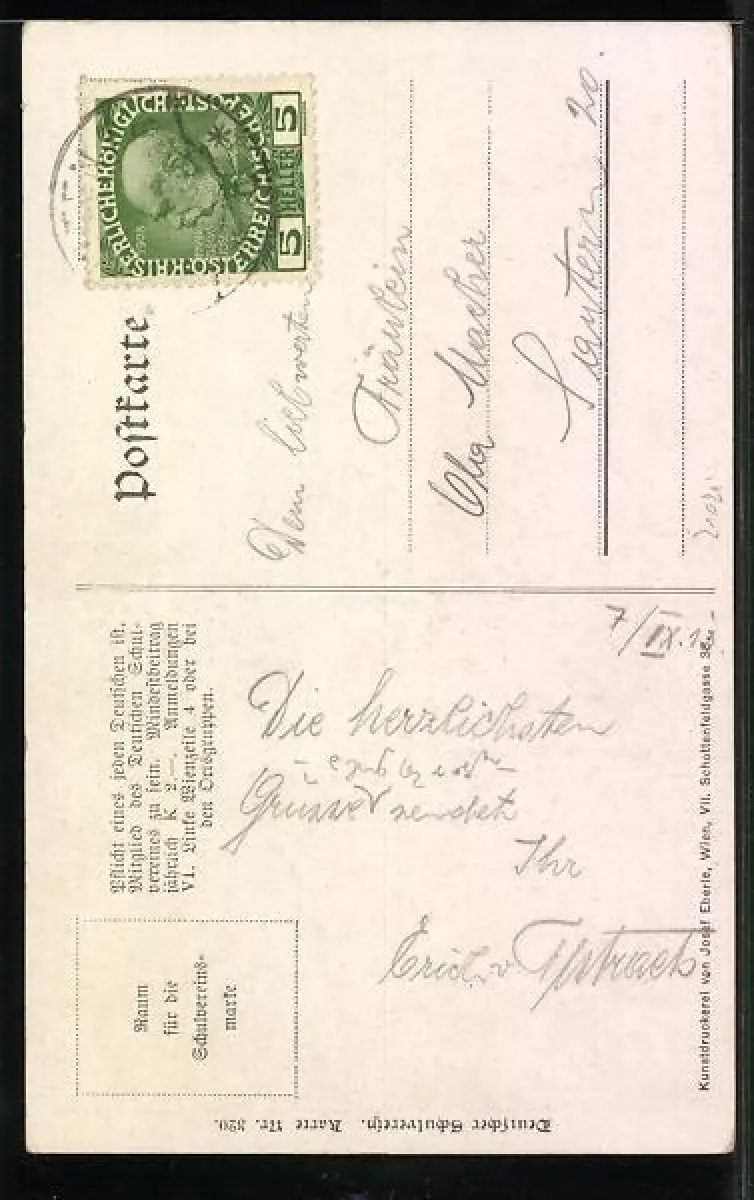 Deutscher Schulverein. Karte Nr. 320.
Raum
für die
Schulvereins-
marke
Pflicht eines jeden Deutschen ist,
Mitglied des Deutschen Schul-
vereines zu sein. Mindestbeitrag
jährlich K 2.—. Anmeldungen
VI. Linke Wienzeile 4 oder bei
den Ortsgruppen.
7/IX.
Die herzlichsten
Grüsse sendet
Ihr
Erich v
Kunstdruckerei von Josef Eberle, Wien, VII. Schottenfeldgasse
Postkarte
KAISERLICHEKÖNIGLICHE
ÖSTERREICHISCHEPOST
5 HELLER 5
1908
Dem liebwerten
Fräulein
Macher
20.